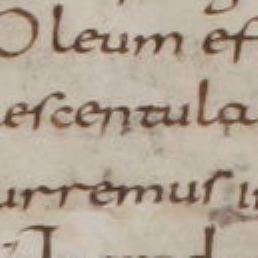 Oleum ef
escentula
urremus i